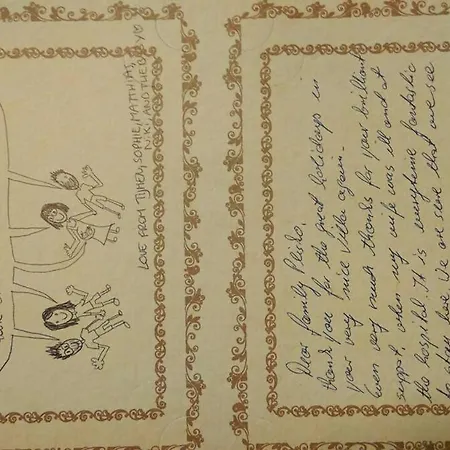 LOVE FROM TIJMEN, SOPHIE, MATTHIAS,
NIKI AND THE BABY
Dear family Plisko,
thank you for the great holidays in
your very nice Villa again.
Even very much thanks for your brilliant
support, when my wife was ill and at
the hospital. It is everytime fantastic
to stay here. We are sure that we see